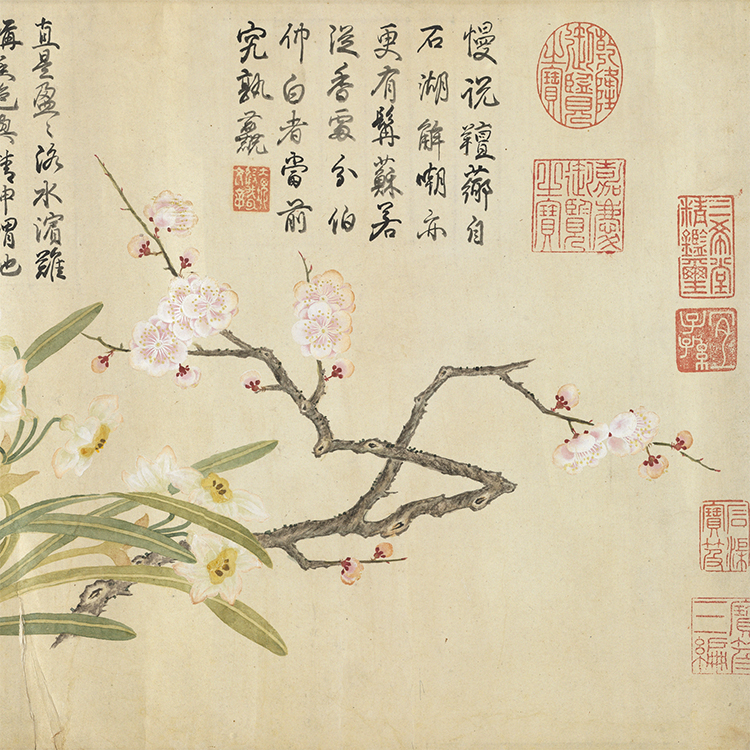 三希堂精鑑璽
宜子孫
石渠寶笈
寶笈三編
乾隆御覽之寶
嘉慶御覽之寶
慢說羶薌自
石湖解嘲亦
更有髯蘇若
從香處分伯
仲白者當前
究孰麤
直是盈〻洛水濱難